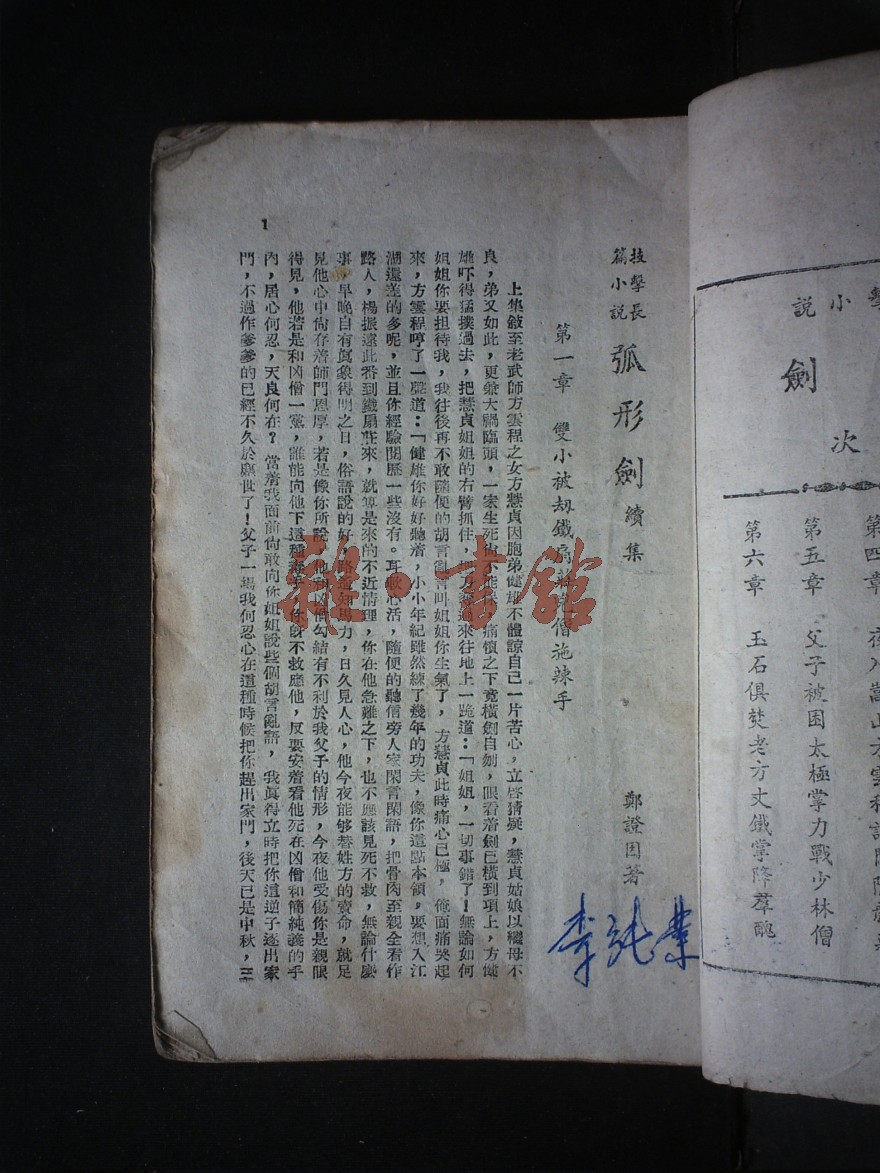 說小
劍
次
第五章　父子被困太極掌力戰少林僧
第六章　玉石俱焚老方丈鐵掌降羣醜
技擊長
篇小說
弧形劍續集
鄭證因著
李純業
第一章　雙小被刼鐵扇莊凶僧施辣手
上集敍至老武師方雲程之女方慧貞因胞弟健雄不體諒自己一片苦心，立啓猜疑，慧貞姑娘以繼母不
良，弟又如此，更兼大禍臨頭，一家生死尙不能保，痛憤之下竟橫劍自刎，眼看着劍已橫到項上，方健
雄吓得猛撲過去，把慧貞姐姐的右臂抓住，劍方奪過來往地上一跪道：「姐姐，一切事錯了！無論如何
姐姐你要担待我，我往後再不敢隨便的胡言亂語叫姐姐你生氣了，方慧貞此時痛心已極，俺面痛哭起
來，方雲程哼了一聲道：「健雄你好好聽着，小小年紀雖然練了幾年的功夫，像你這點本領，要想入江
湖還差的多呢，並且你經驗閱歷一些沒有。耳軟心活，隨便的聽信旁人家閑言閑語，把骨肉至親全看作
路人，楊振遠此番到鐵扇莊來，就算是來的不近情理，你在他急難之下，也不應該見死不救，無論什麽
事，早晚自有眞象得明之日，俗語說的好，路遙知馬力，日久見人心，他今夜能够替姓方的賣命，就足
見他心中尙存着師門恩厚，若是像你所說，他和凶僧勾結有不利於我父子的情形，今夜他受傷你是親眼
得見，他若是和凶僧一黨，誰能向他下這種毒手，你身不救應他，反要安着看他死在凶僧和簡純義的手
內，居心何忍，天良何在？當着我面前尙敢向你姐姐說些個胡言亂語，我眞得立時把你這逆子逐出家
門，不過作爹爹的已經不久於塵世了！父子一場我何忍心在這種時候把你趕出家門，後天已是中秋，三
1
雜·書館